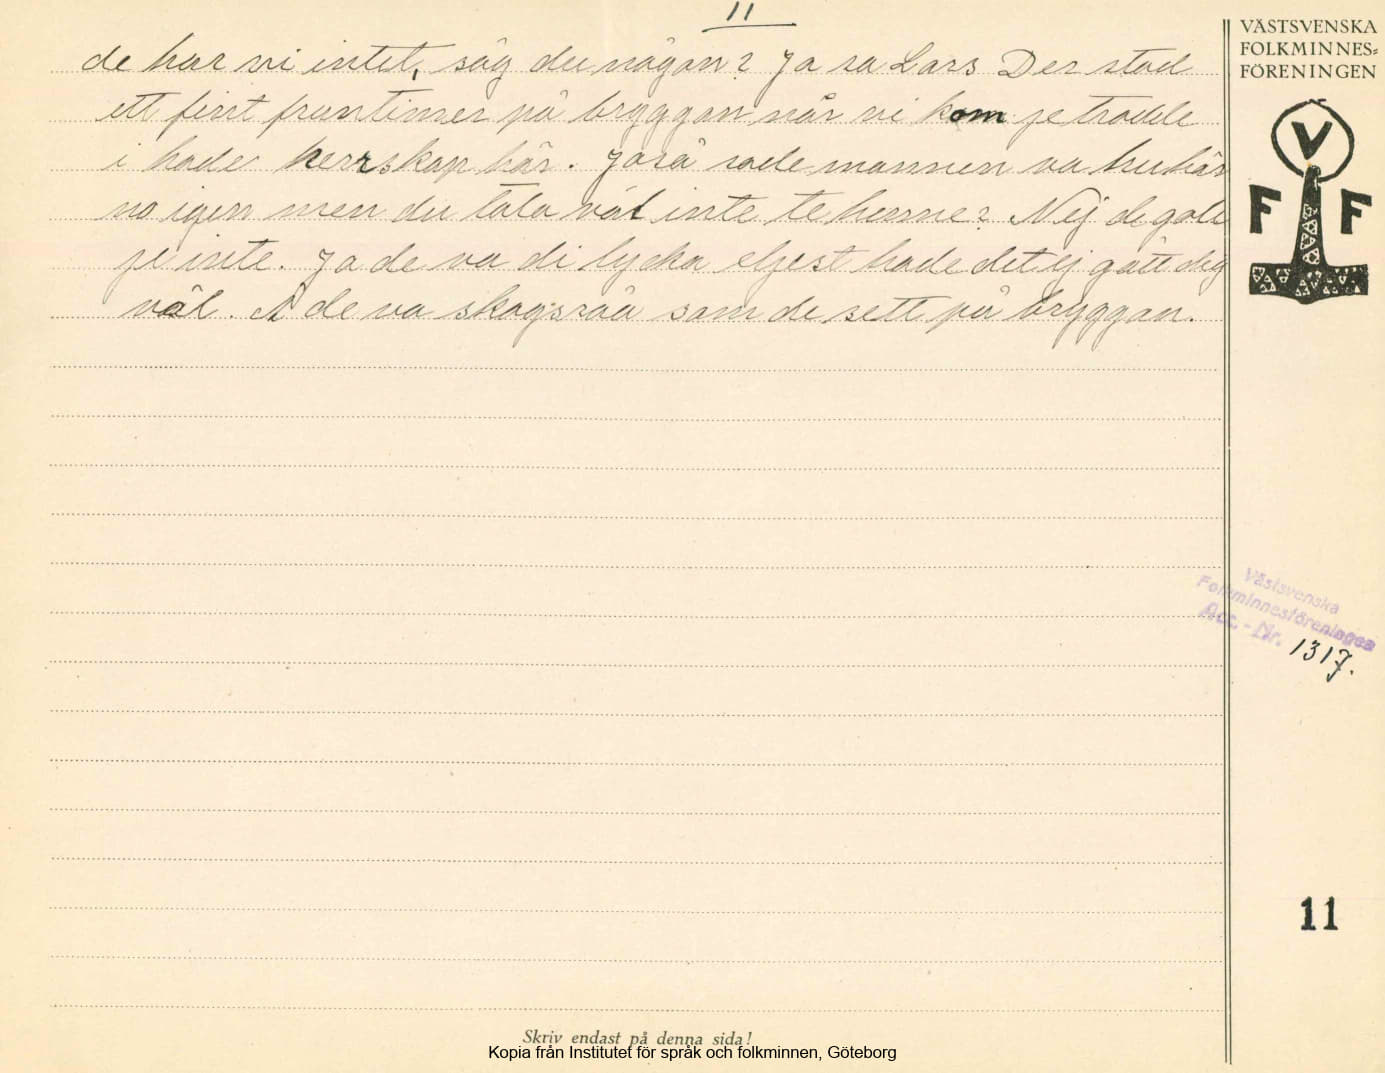 11
de har vi intet, såg du någon? Ja sa Lars Der stod
ett fint fruntimer på bryggan når vi kom je trodde
i hade herrskap här. Jaså sade mannen va hu här
no igen men du tala väl inte te henne? Nej de gole
je inte. Ja de va di lycka eljest hade det ej gått dig
väl. A de va skogsråa som de sett på bryggan.
VÄSTSVENSKA
FOLKMINNES=
FÖRENINGEN
V
F F
Västsvenska
Folkminnesföreningen
Acc.-Nr. 1317.
11
Skriv endast på denna sida!
Kopia från Institutet för språk och folkminnen, Göteborg